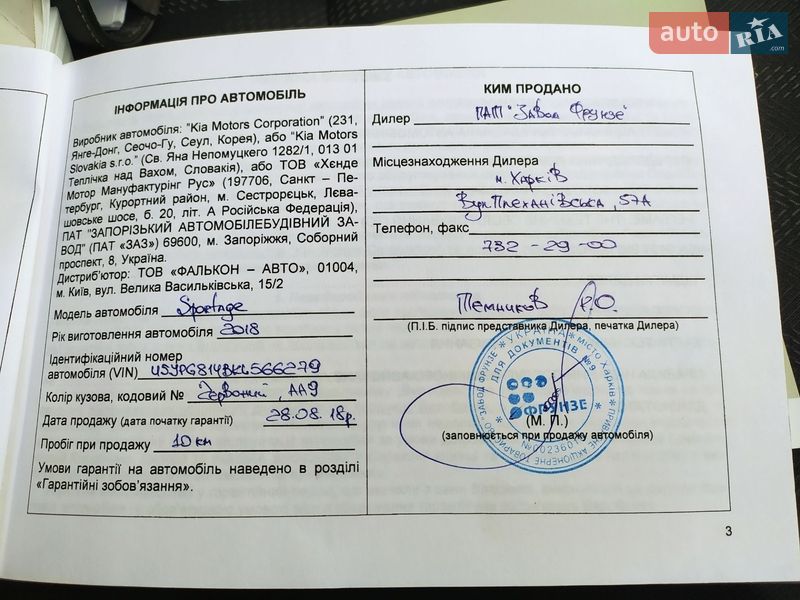 auto RIA .com
ІНФОРМАЦІЯ ПРО АВТОМОБІЛЬ
Виробник автомобіля: "Kia Motors Corporation" (231,
Янге-Донг, Сеочо-Гу, Сеул, Корея), або "Kia Motors
Slovakia s.r.o." (Св. Яна Непомуцкего 1282/1, 013 01
Теплічка над Вахом, Словакія), або ТОВ «Хєнде
Мотор Мануфактурінг Рус» (197706, Санкт – Пе-
тербург, Курортний район, м. Сестрорєцьк, Лєва-
шовське шосе, б. 20, літ. А Російська Федерація),
ПАТ "ЗАПОРІЗЬКИЙ АВТОМОБІЛЕБУДІВНИЙ ЗА-
ВОД" (ПАТ «ЗАЗ») 69600, м. Запоріжжя, Соборний
проспект, 8, Україна.
Дистриб'ютор: ТОВ «ФАЛЬКОН – АВТО», 01004,
м. Київ, вул. Велика Васильківська, 15/2
Модель автомобіля Sportage
Рік виготовлення автомобіля 2018
Ідентифікаційний номер
автомобіля (VIN)
Колір кузова, кодовий № Червоний, АА9
Дата продажу (дата початку гарантії) 28.08.18р.
Пробіг при продажу 10км
Умови гарантії на автомобіль наведено в розділі
«Гарантійні зобов'язання».
КИМ ПРОДАНО
Дилер ПАТ "Завод Фрунзе"
Місцезнаходження Дилера
м. Харків
вул Плеханівська, 57А
Телефон, факс
732-29-00
Темников Р.О.
(П.І.Б. підпис представника Дилера, печатка Дилера)
УКРАЇНА * місто Харків * ПРИВАТНЕ АКЦІОНЕРНЕ ТОВАРИСТВО * ЗАВОД ФРУНЗЕ *
ДЛЯ ДОКУМЕНТІВ №9
ФРУНЗЕ
(М. П.)
(заповнюється при продажу автомобіля)
3